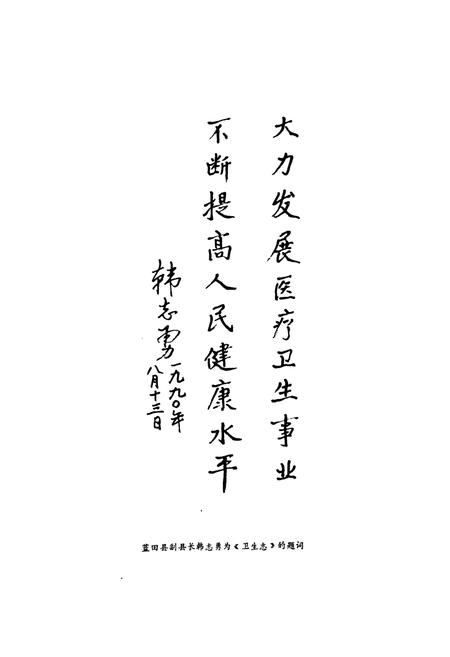 大力发展医疗卫生事业
不断提高人民健康水平
韩志勇
一九九〇年
八月十三日
蓝田县副县长韩志勇为《卫生志》的题词